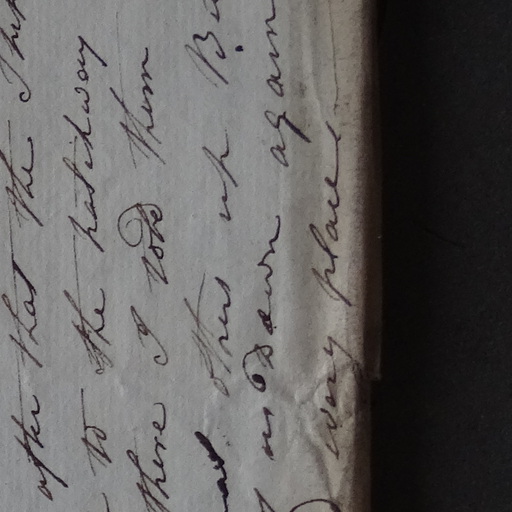 after that the
to the hatchway
there I told them
others up
us down again
very place